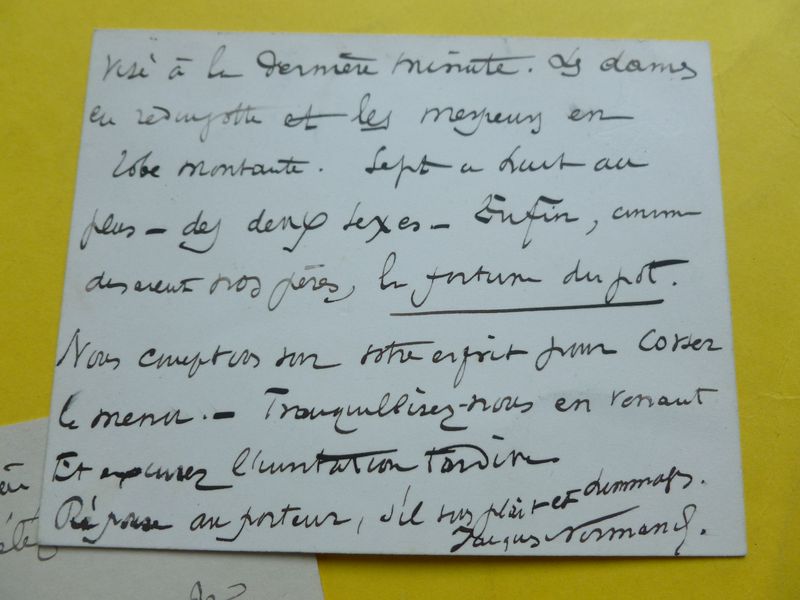 visé à la dernière minute. Les dames
en redingotte et les messieurs en
robe montante. Sept a huit au
plus - des deux sexes - Enfin, comme
disaient nos pères, la fortune du pot.
Nous comptons sur votre esprit pour corser
le menu. - Tranquillisez-nous en venant
Et excusez l'invitation tardive
Réponse au porteur, s'il vous plait et hommages.
Jacques Normand.